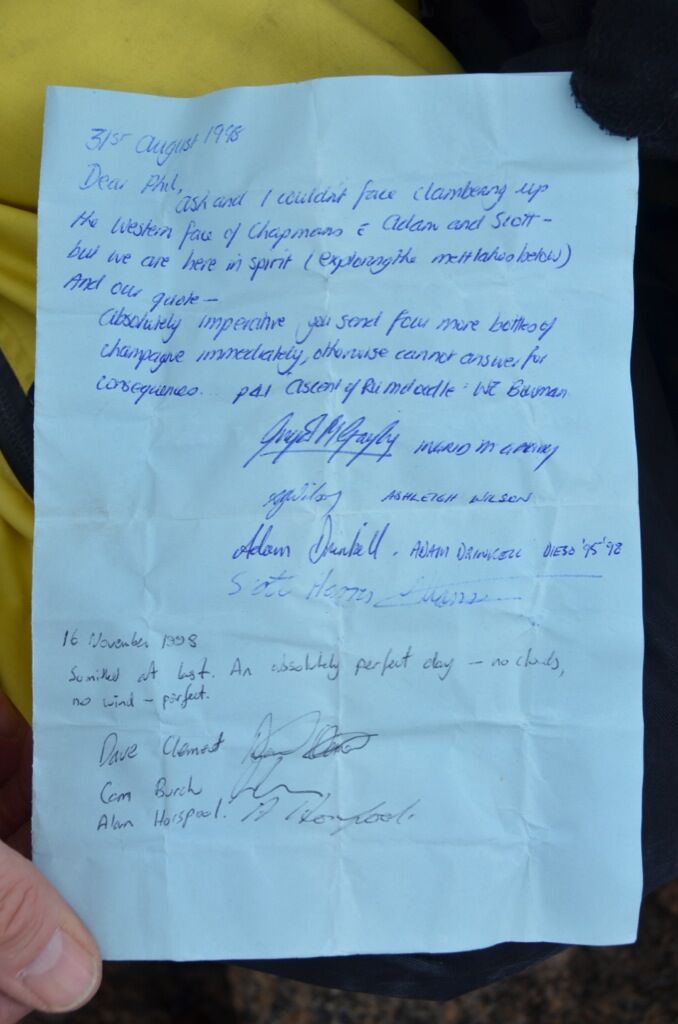 31st August 1998
Dear Phil,
Ash and I couldn't face clambering up
the Western face of Chapmans & Adam and Scott –
but we are here in spirit (exploring the melt lakes below)
And our quote –
Absolutely imperative you send four more bottles of
champagne immediately, otherwise cannot answer for
consequences... p41 Ascent of Rumdoodle: WE Bowman.
INGRID
ASHLEIGH WILSON
Adam Drinkell. ADAM DRINKELL '95 '98
Scott
16 November 1998
Sumitted at last. An absolutely perfect day – no clouds,
no wind – perfect.
Dave Clement
Cam Burch
Alan Horspool. A Horspool.